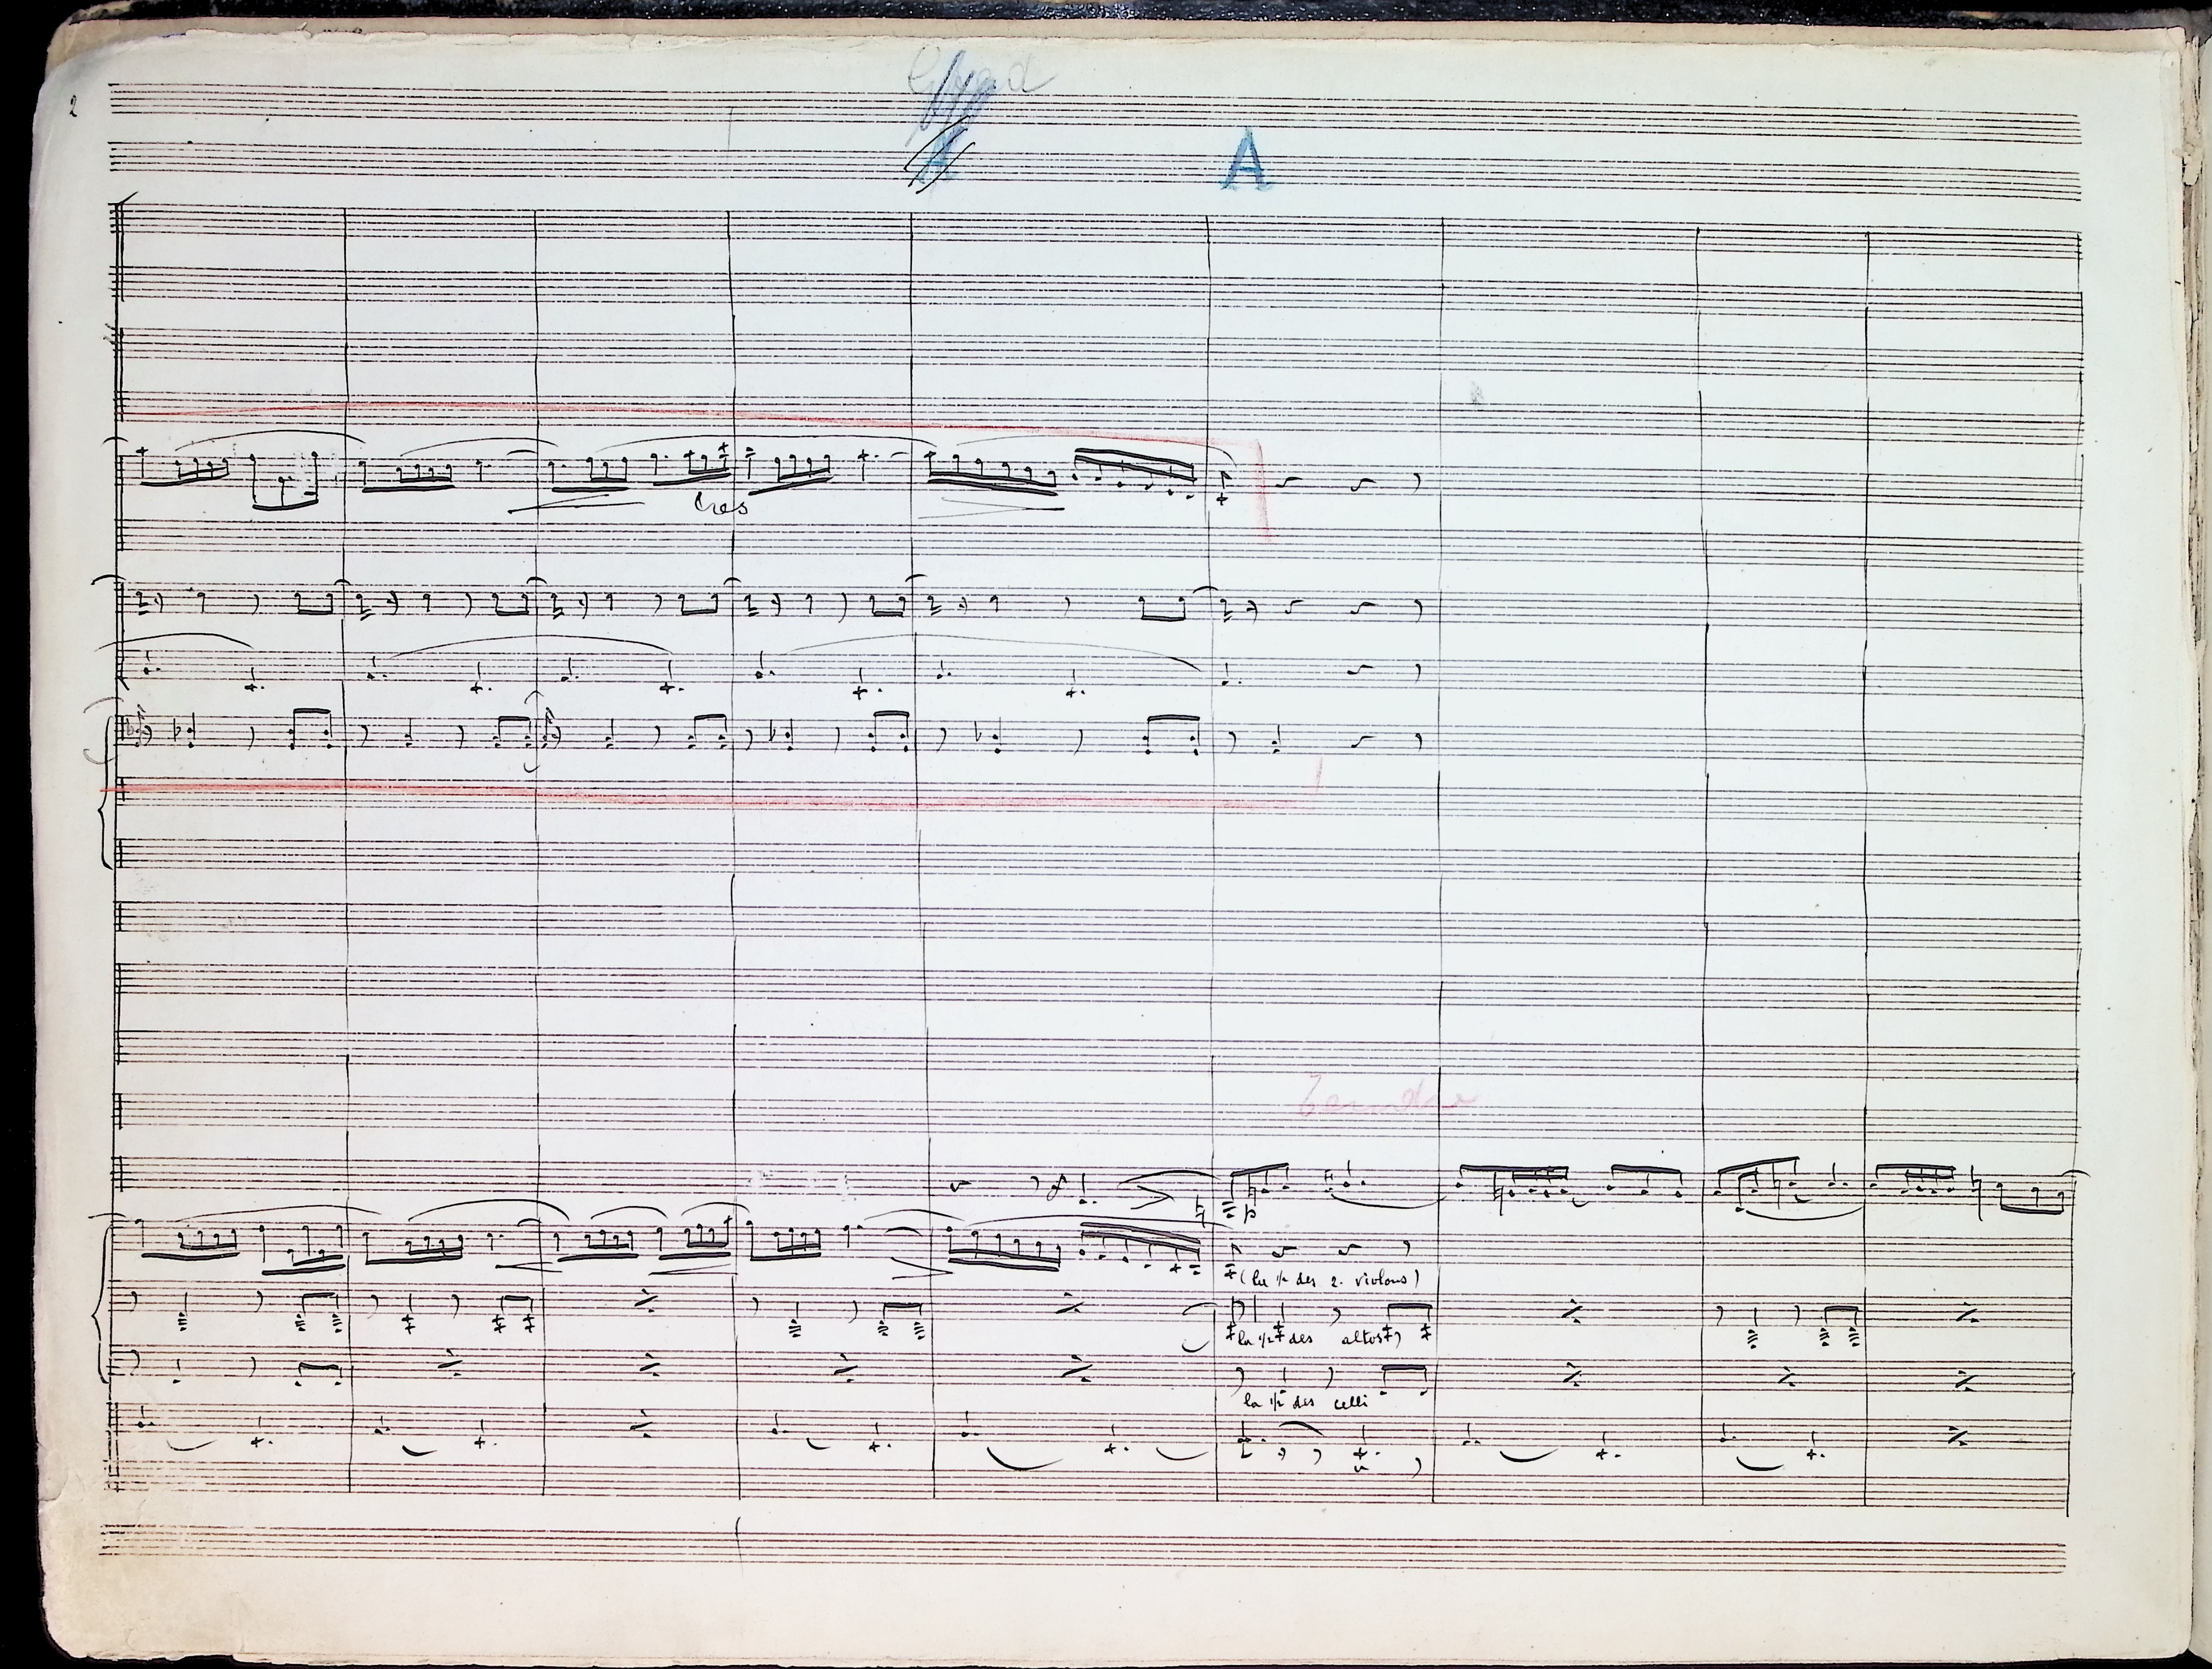 2
A
A
Cres
p
(la 1/2 des 2. violons)
(la 1/2 des altos)
la 1/2 des celli